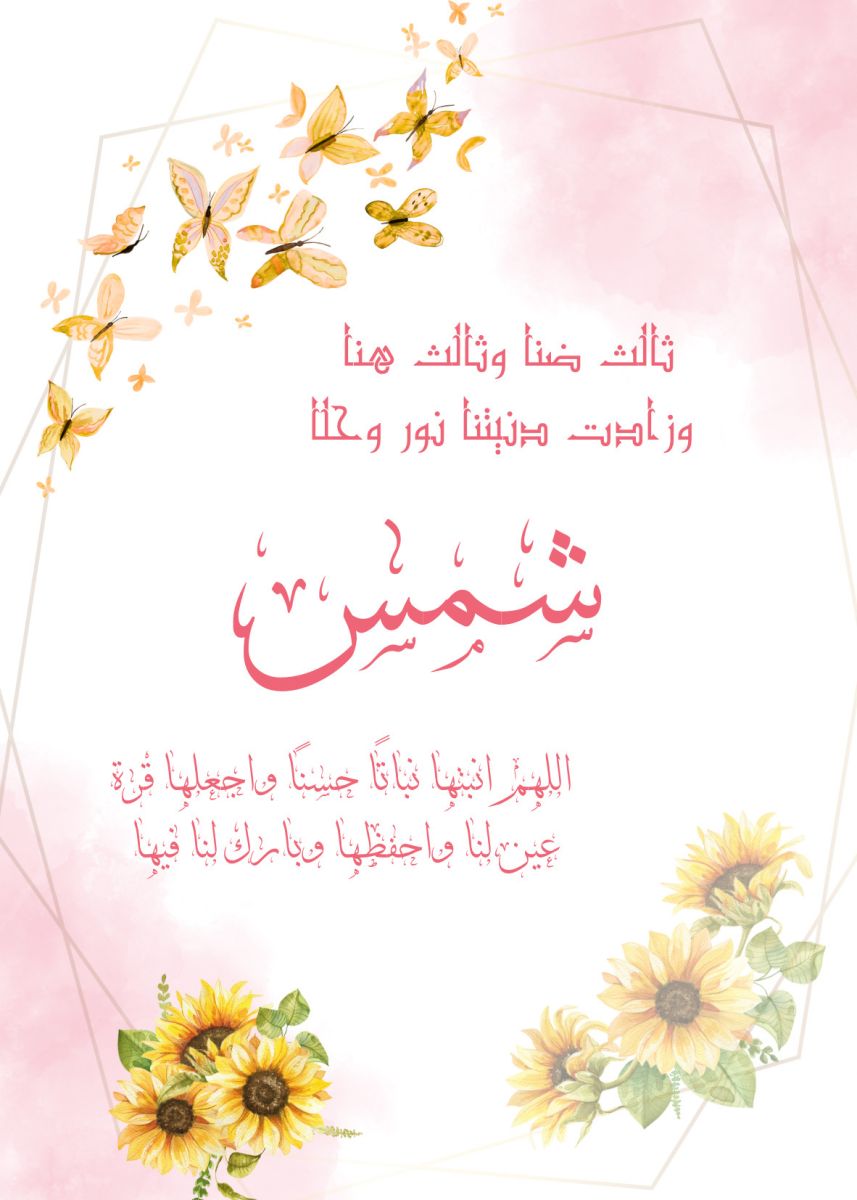 ثالث ضنا وثالث هنا
وزادت دنيتنا نور وحلا
شمس
اللهم انبتها نباتًا حسنًا واجعلها قرة
عين لنا واحفظها وبارك لنا فيها